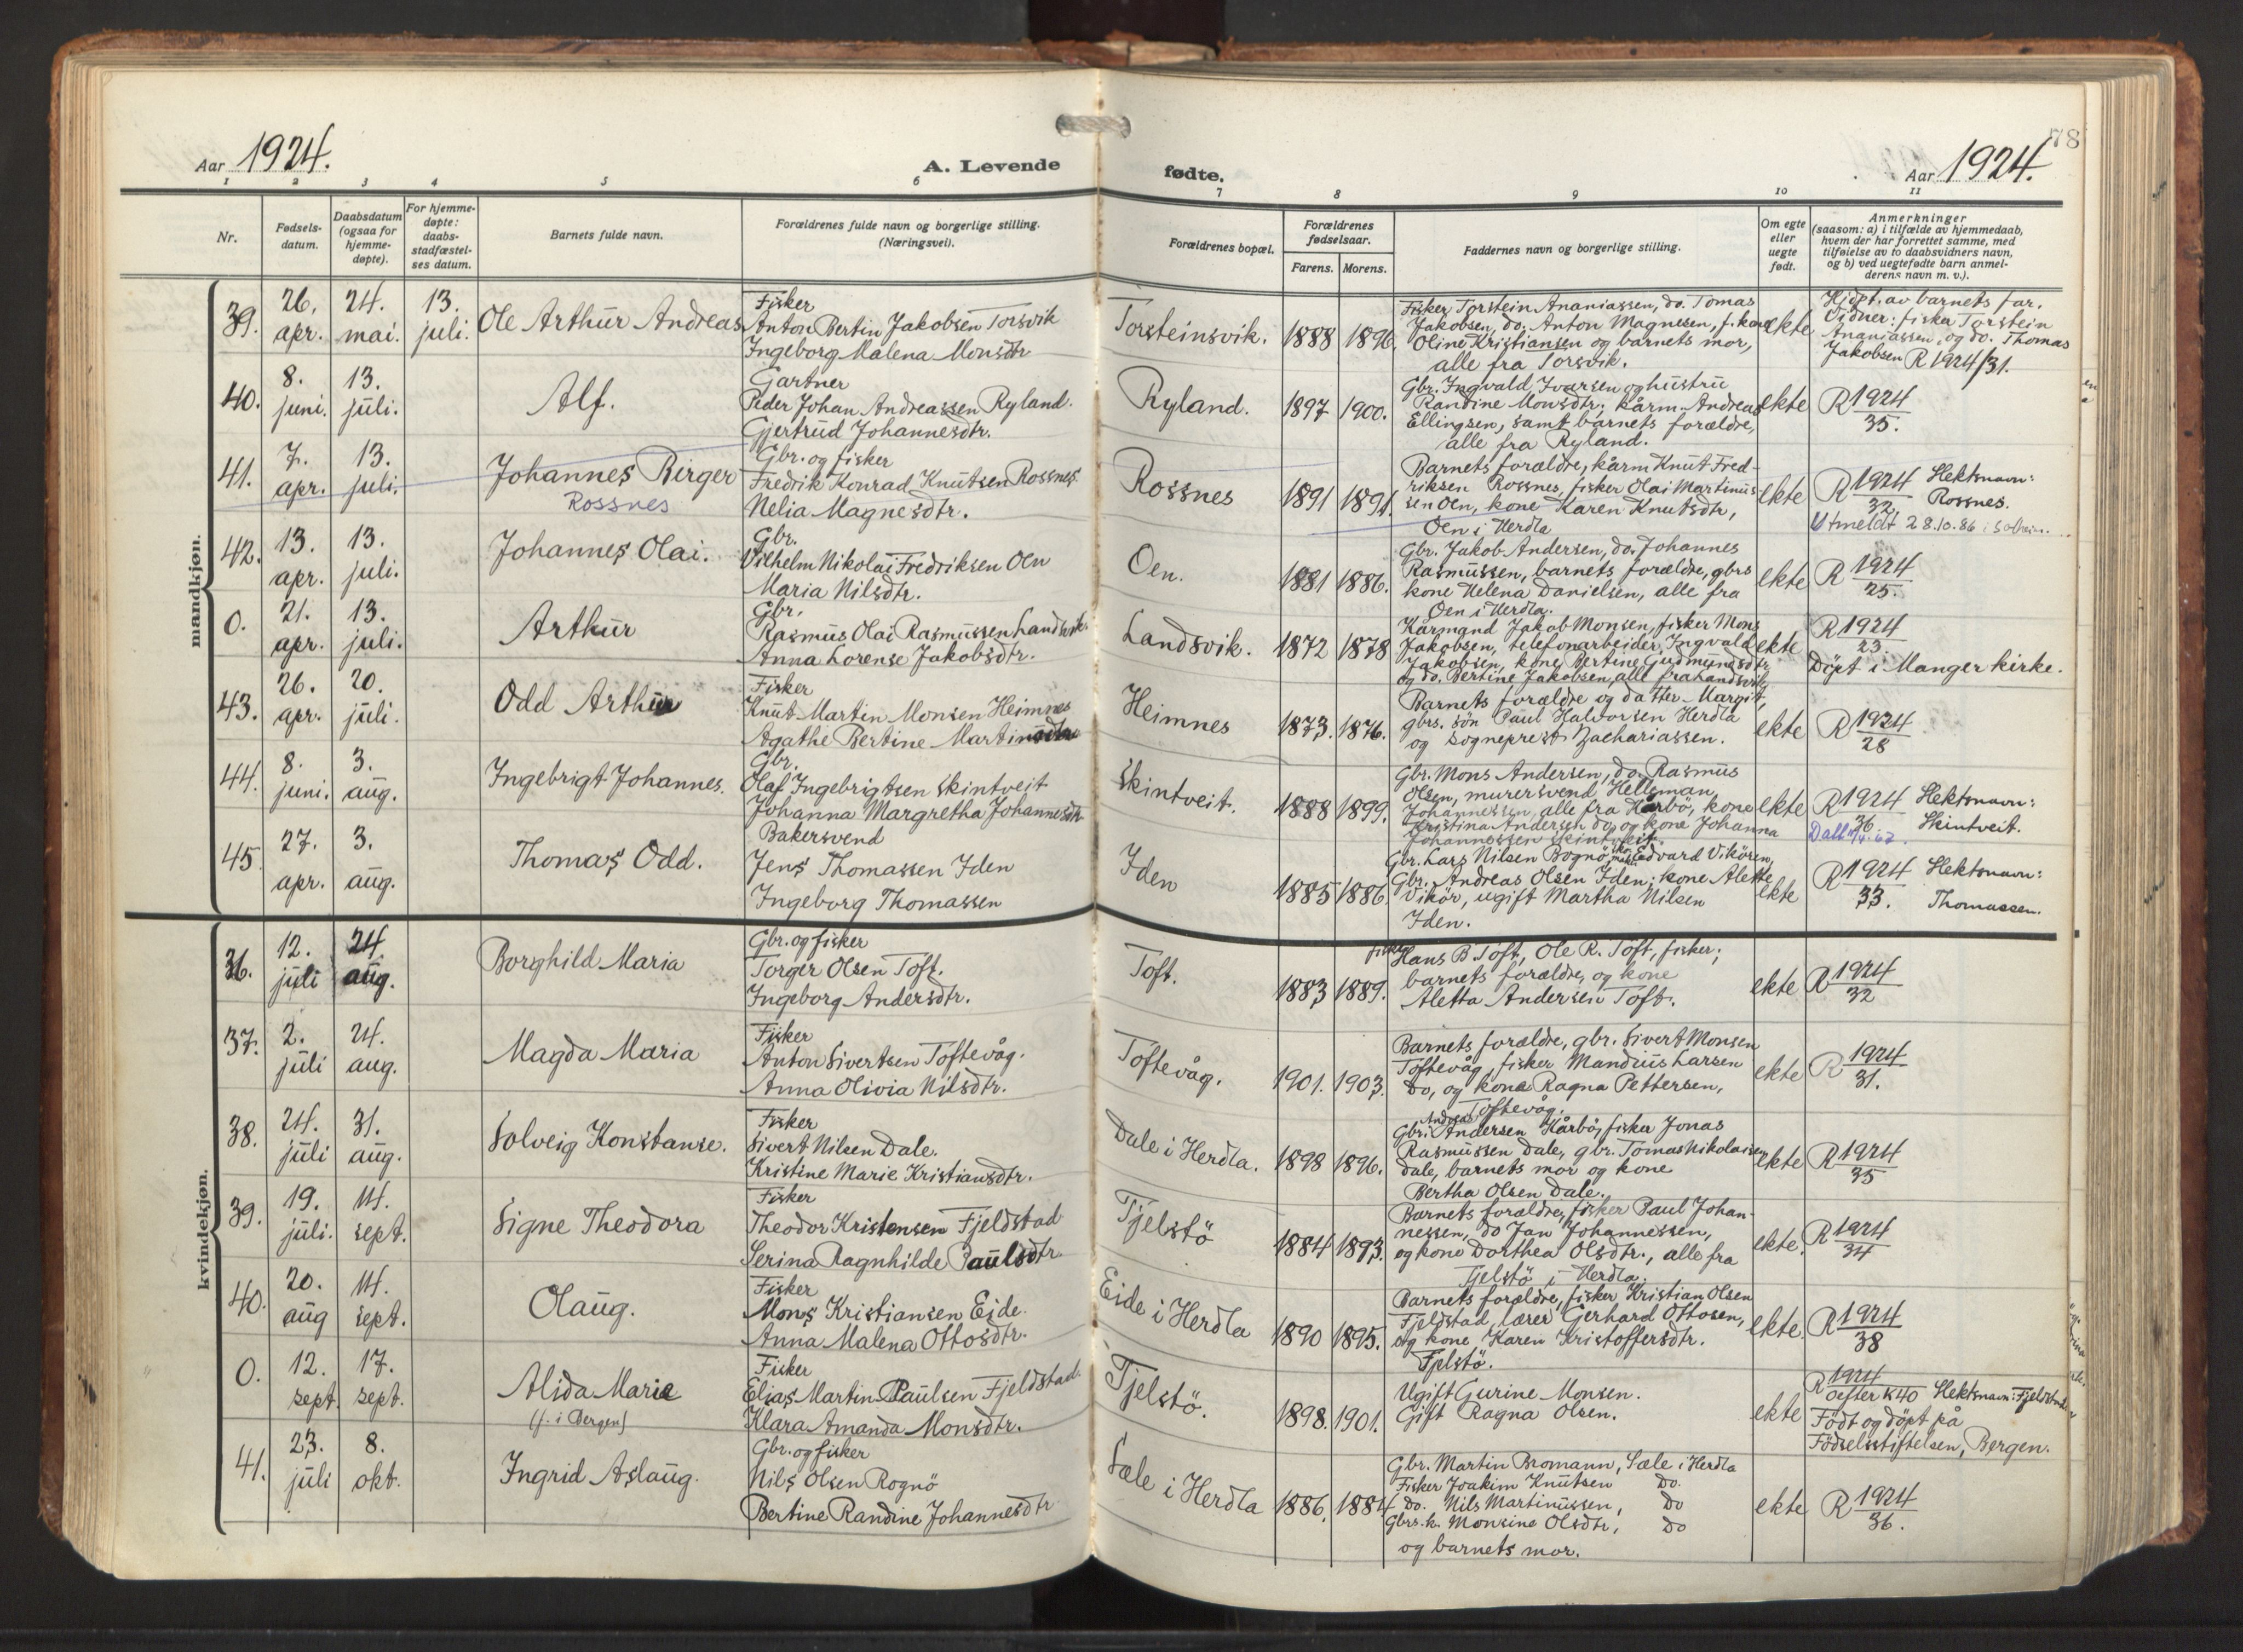 78
Aar 1924.
A. Levende fødte.
Aar 1924.
1 2 3 4 5 6 7 8 9 10 11
Nr.
Fødselsdatum.
Daabsdatum (ogsaa for hjemmedøpte).
For hjemmedøpte: daabsstadfæstelses datum.
Barnets fulde navn.
Forældrenes fulde navn og borgerlige stilling. (Næringsvei).
Forældrenes bopæl.
Forældrenes fødselsaar.
Farens. Morens.
Faddernes navn og borgerlige stilling.
Om egte eller uegte født.
Anmerkninger
(saasom: a) i tilfælde av hjemmedaab,
hvem der har forrettet samme, med
tilføielse av to daabsvidners navn,
og b) ved uegtefødte barn anmel-
derens navn m. v.).
mandkjøn.
39. 26. apr. 24. mai. 13. juli. Ole Arthur Andreas
Fisker
Anton Bertin Jakobsen Torsvik
Ingeborg Malena Monsdtr
Torsteinsvik. 1888 1896.
Fisker Torstein Ananiassen, do. Tomas
Jakobsen, do. Anton Magnesen, f. kone
Oline Kristiansen og barnets mor,
alle fra Torsvik.
ekte
Hjdpt. av barnets far.
Vidner: fisker Torstein
Ananiassen, og do. Thomas
Jakobsen R 1924/31.
40. 8. juni. 13. juli. Alf.
Gartner
Peder Johan Andreassen Ryland.
Gjertrud Johannesdtr.
Ryland. 1897 1900.
Gbr. Ingvald Ivarsen og hustru
Randine Monsdtr., kårm. Andreas
Ellingsen, samt barnets forældre,
alle fra Ryland.
ekte R 1924/35.
41. 7. apr. 13. juli. Johannes Birger
Rossnes
Gbr. og fisker
Fredrik Konrad Knutsen Rossnes.
Nelia Magnesdtr.
Rossnes 1891 1891.
Barnets forældre, kårm Knut Fred-
riksen Rossnes, fisker Olai Martinus-
sen Oen, kone Karen Knutsdtr,
Oen i Herdla
ekte R 1924/32. Slektsnavn: Rossnes.
Utmeldt 28.10.86 i
42. 13. apr. 13. juli. Johannes Olai.
Gbr.
Vilhelm Nikolai Fredriksen Oen
Maria Nilsdtr.
Oen. 1881 1886.
Gbr. Jakob Andersen, do. Johannes
Rasmussen, barnets forældre, gbrs
kone Helena Danielsen, alle fra
Oen i Herdla.
ekte R 1924/25.
0. 21. apr. 13. juli. Arthur
Gbr.
Rasmus Olai Rasmussen Landsvik.
Anna Lorense Jakobsdtr.
Landsvik. 1872 1878
Kårmand Jakob Monsen, fisker Mons
Jakobsen, telefonarbeider Ingvald
Jakobsen, kone Bertine Gudmundsdtr
og do. Bertine Jakobsen, alle fra Landsvik
ekte R 1924/23.
Döpt i Manger kirke.
43. 26. apr. 20. juli. Odd Arthur
Fisker
Knut Martin Monsen Heimnes
Agathe Bertine Martinsdtr
Heimnes 1873. 1876.
Barnets forældre og datter Margit,
gbrs. søn Paul Halvorsen Herdla
og sogneprest Zachariassen.
ekte R 1924/28
44. 8. juni. 3. aug. Ingebrigt Johannes.
Gbr.
Olaf Ingebrigtsen Skintveit
Johanna Margretha Johannesdtr
Skintveit. 1888 1899.
Gbr. Mons Andersen, do. Rasmus
Olsen, murersvend Hellsman
Johannessen, alle fra Hårbö, kone
Kristina Andersen do, og kone Johanna
Johannessen Skintveit.
ekte R 1924/36 Slektsnavn: Skintveit.
45. 27. apr. 3. aug. Thomas Odd.
Bakersvend
Jens Thomassen Iden
Ingeborg Thomassen
Iden 1885 1886.
Gbr. Lars Nilsen Bognö, Edvard Vikören,
Gbr. Andreas Olsen Iden; kone Alette
Vikör, ugift Martha Nilsen
Iden.
ekte R 1924/33. Slektsnavn: Thomassen.
kvindekjøn.
36. 12. juli 24. aug. Borghild Maria
Gbr. og fisker
Torger Olsen Toft.
Ingeborg Andersdtr.
Toft. 1883 1889.
Fisker Hans B Toft, Ole R. Toft, fisker;
barnets forældre, og kone
Aletta Andersen Toft.
ekte R 1924/32
37. 2. juli 24. aug. Magda Maria
Fisker
Anton Sivertsen Toftevåg.
Anna Olivia Nilsdtr.
Toftevåg. 1901. 1903.
Barnets forældre, gbr. Sivert Monsen
Toftevåg, fisker Mandius Larsen
Do, og kone Ragna Pettersen,
Toftevåg.
ekte R 1924/31.
38. 24. juli 31. aug. Solveig Konstanse.
Fisker
Sivert Nilsen Dale.
Kristine Marie Kristiansdtr.
Dale i Herdla. 1898 1896.
Gbr. Andreas Andersen Hårbö, fisker Jonas
Rasmussen Dale, gbr. Tomas Nikolaisen
Dale, barnets mor og kone
Bertha Olsen Dale.
ekte R 1924/35
39. 19. juli. 14. sept. Signe Theodora
Fisker
Theodor Kristensen Fjeldstad
Serina Ragnhilde Paulsdtr.
Tjelstö 1884 1893.
Barnets forældre, fisker Paul Johan-
nessen, do Jan Johannessen,
og kone Dorthea Olsdtr., alle fra
Tjelstö i Herdla.
ekte. R 1924/34
40. 20. aug 14. sept. Olaug.
Fisker
Mons Kristiansen Eide.
Anna Malena Ottosdtr.
Eide i Herdla 1890 1895.
Barnets forældre, fisker Kristian Olsen
Fjeldstad, lærer Gerhard Ottosen,
og kone Karen Kristoffersdtr.
Tjelstö.
ekte. R 1924/38
0. 12. sept. 17. sept. Alida Marie
(f. i Bergen)
Fisker
Elias Martin Paulsen Fjeldstad.
Klara Amanda Monsdtr.
Tjelstö. 1898. 1901.
Ugift Gurine Monsen.
Gift Ragna Olsen.
ekte R 1924/oefter k40 Slektsnavn: Fjeldstad
Födt og döpt på
Födselsstiftelsen, Bergen.
41. 23. juli 8. okt. Ingrid Aslaug.
Gbr. og fisker
Nils Olsen Rognö
Bertine Randine Johannesdtr
Sæle i Herdla 1886. 1884
Gbr. Martin Bromann, Sæle i Herdla
Fisker Joakim Knutsen Do.
do. Nils Martinussen, Do
Gbrs. k. Monsine Olsdtr, Do
og barnets mor.
ekte R 1924/36.